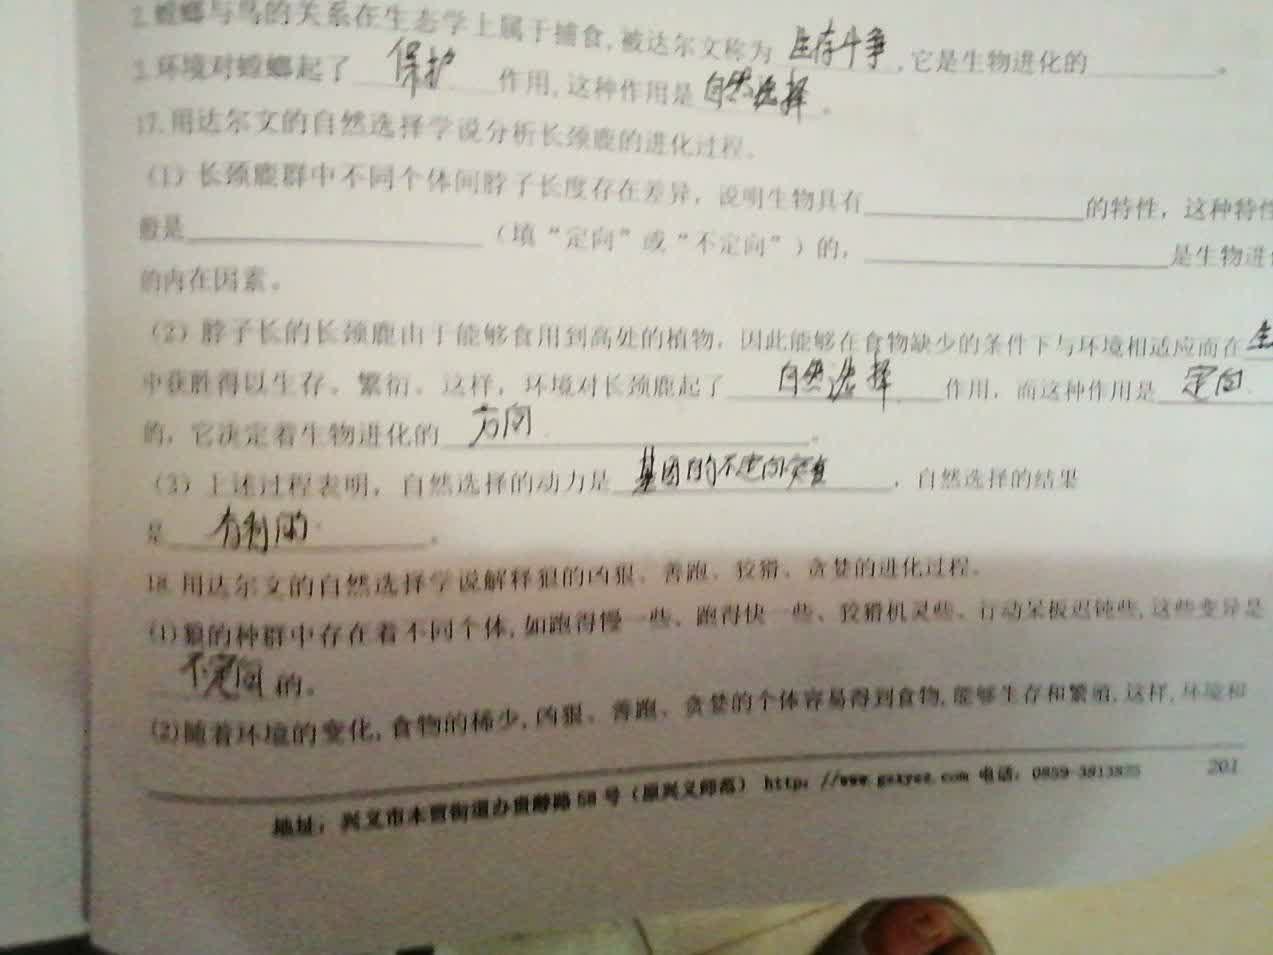 2.螳螂与鸟的关系在生态学上属于捕食,被达尔文称为 生存斗争 ,它是生物进化的________。
3.环境对螳螂起了 保护 作用,这种作用是 自然选择 。
17.用达尔文的自然选择学说分析长颈鹿的进化过程。
(1)长颈鹿群中不同个体间脖子长度存在差异，说明生物具有________的特性，这种特性
般是________（填“定向”或“不定向”）的，________是生物进化
的内在因素。
(2)脖子长的长颈鹿由于能够食用到高处的植物，因此能够在食物缺少的条件下与环境相适应而在 生
中获胜得以生存、繁衍。这样，环境对长颈鹿起了 自然选择 作用，而这种作用是 定向
的，它决定着生物进化的 方向 。
(3)上述过程表明，自然选择的动力是 基因的不定向突变 ，自然选择的结果
是 有利的 。
18.用达尔文的自然选择学说解释狼的凶狠、善跑、狡猾、贪婪的进化过程。
(1)狼的种群中存在着不同个体,如跑得慢一些、跑得快一些、狡猾机灵些、行动呆板迟钝些,这些变异是
不定向 的。
(2)随着环境的变化,食物的稀少,凶狠、善跑、贪婪的个体容易得到食物,能够生存和繁殖,这样,环境和
地址：兴义市木贾街道办贵醇路58号（原兴义师范） http: //www.gsxyez.com 电话：0859-3813835 201